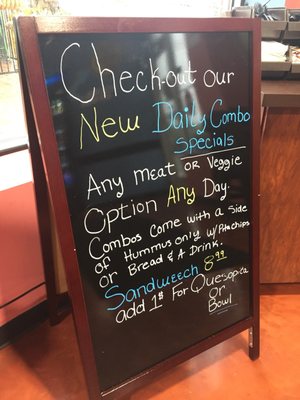 Check-out our
New Daily Combo
Specials
Any Meat or Veggie
Option Any Day.
Combos come with a side
of Hummus only w/ Pita chips
or Bread & A Drink.
Sandweech 8.99
add 1$ For Quesopita
or
Bowl